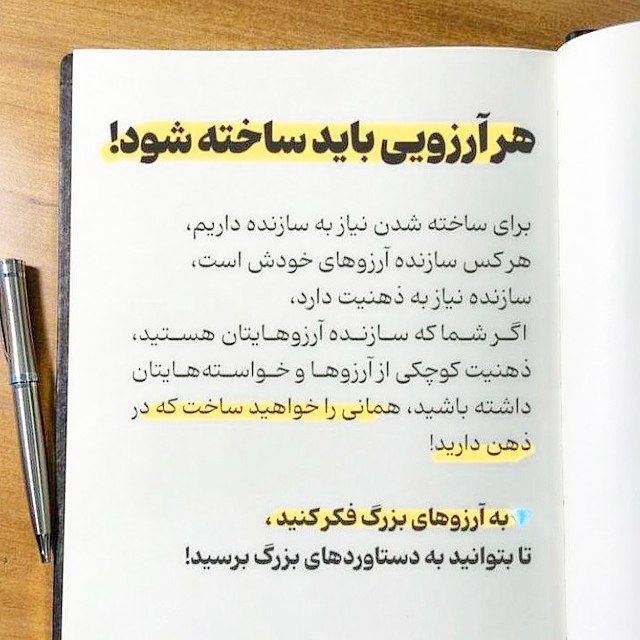 هر آرزویی باید ساخته شود!
برای ساخته شدن نیاز به سازنده داریم،
هر کس سازنده آرزوهای خودش است،
سازنده نیاز به ذهنیت دارد،
اگر شما که سازنده آرزوهایتان هستید،
ذهنیت کوچکی از آرزوها و خواسته‌هایتان
داشته باشید، همانی را خواهید ساخت که در
ذهن دارید!
💎به آرزوهای بزرگ فکر کنید،
تا بتوانید به دستاوردهای بزرگ برسید!